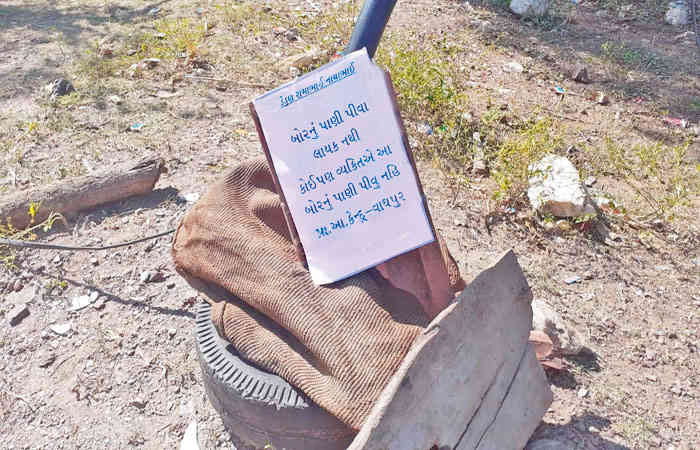 રામાભાઈ નાથાભાઈ
બોરનું પાણી પીવા
લાયક નથી
કોઈ પણ વ્યકિતએ આ
બોરનું પાણી પીવુ નહિ
પ્રા.આ.કેન્દ્ર-વાઘપુર